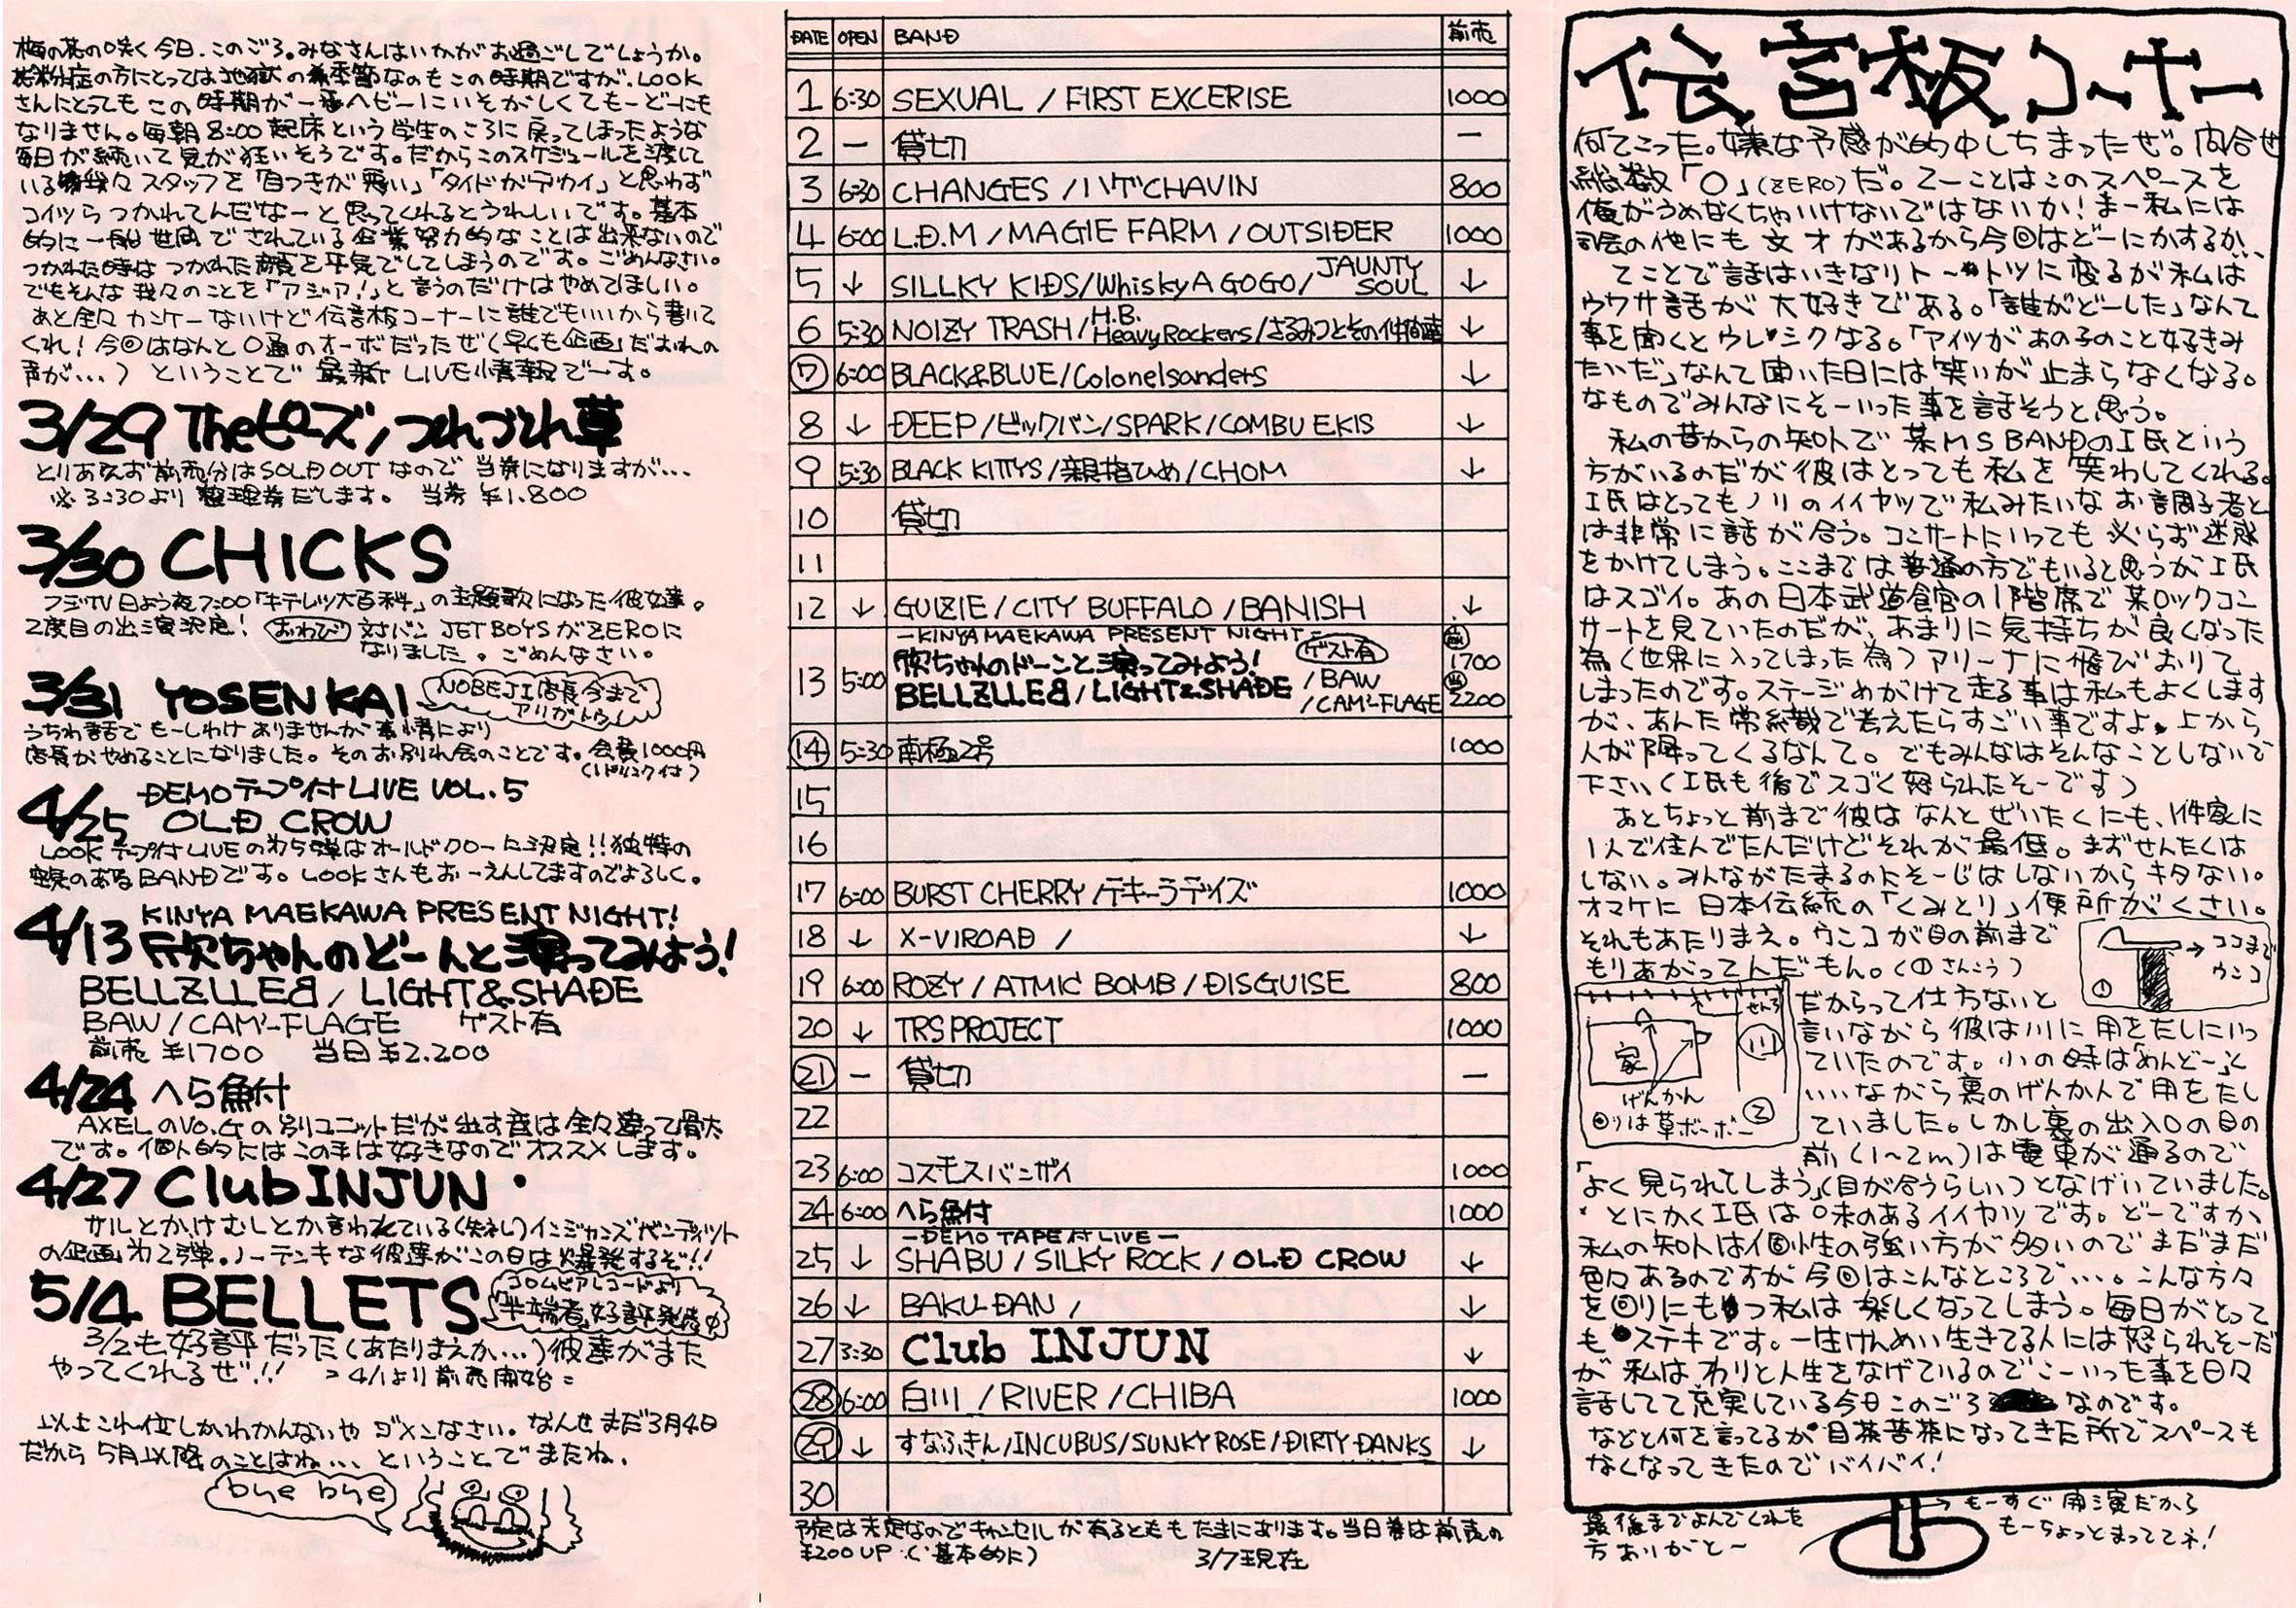 梅の花の咲く今日、このごろ。みなさんはいかがお過ごしでしょうか。
花粉症の方にとっては地獄の季節なのもこの時期ですが、LOOK
さんにとってもこの時期が一番ヘビーにいそがしくてもーどーにも
なりません。毎朝8:00起床という学生のころに戻ってしまったような
毎日が続いて気が狂いそうです。だからこのスケジュールを渡して
いる我々スタッフを「目つきが悪い」「タイドがデカイ」と思わず
コイツらつかれてんだなーと思ってくれるとうれしいです。基本
的に一般世間でされている企業努力的なことは出来ないので
つかれた時はつかれた顔を平気でしてしまうのです。ごめんなさい。
でもそんな我々のことを「アジア!」と言うのだけはやめてほしい。
あと全々カンケーないけど伝言板コーナーに誰でもいいから書いて
くれ!今回はなんと0通のオーボだったぜ(早くも企画だおれの
声が...)ということで最新LIVE情報でーす。
3/29 Theピーズ/つれづれ草
とりあえず前売分はSOLD OUTなので当券になりますが...
※3:30より整理券だします。 当券¥1.800
3/30 CHICKS
フジTV日よう夜7:00「キテレツ大百科」の主題歌になった彼女達。
2度目の出演決定! おわび 対バンJET BOYSがZEROに
なりました。ごめんなさい。
3/31 YOSENKAI NOBEJI店長今まで
アリガトウ
うちわ話でもーしわけありませんが事情により
店長がやめることになりました。そのお別れ会のことです。会費1000円
(1ドリンク付)
4/25 DEMOテープ付LIVE VOL.5
OLD CROW
LOOKテープ付LIVEのオ5弾はオールドクローに決定!!独特の
空気のあるBANDです。LOOKさんもおーえんしてますのでよろしく。
4/13 KINYA MAEKAWA PRESENT NIGHT!
欣ちゃんのどーんと演ってみよう!
BELLZLLEB / LIGHT&SHADE
BAW / CAM'-FLAGE ゲスト有
前売¥1700 当日¥2.200
4/24 へら魚付
AXELのVo.Gの別ユニットだが出す音は全々違って骨太
です。個人的にはこの手は好きなのでオススメします。
4/27 Club INJUN
サルとかけむしとか言われている(失ネし)インジャンズバンディット
の企画オ2弾。ノーテンキな彼達がこの日は爆発するぞ!!
5/4 BELLETS コロムビアレコードより
「半端者」好評発売中
3/2も好評だった(あたりまえか...)彼達がまた
やってくれるぜ!! =4/1より前売開始=
以上これ位しかわかんないやゴメンなさい。なんせまだ3月4日
だから5月以降のことはね... ということでまたね。
bye bye
DATE OPEN BAND 前売
1 6:30 SEXUAL / FIRST EXCERISE 1000
2 — 貸切 —
3 6:30 CHANGES / ハゲCHAVIN 800
4 6:00 L.D.M / MAGIE FARM / OUTSIDER 1000
5 ↓ SILLKY KIDS / Whisky A GOGO / JAUNTY SOUL ↓
6 5:30 NOIZY TRASH / H.B. Heavy Rockers / さるみつとその仲間達 ↓
7 6:00 BLACK&BLUE / Colonelsanders ↓
8 ↓ DEEP / ビックバン / SPARK / COMBU EKIS ↓
9 5:30 BLACK KITTYS / 親指ひめ / CHOM ↓
10 貸切
11
12 ↓ GUIZIE / CITY BUFFALO / BANISH ↓
13 5:00 —KINYA MAEKAWA PRESENT NIGHT—
欣ちゃんのドーンと演ってみよう! ゲスト有 前 1700
BELLZLLEB / LIGHT&SHADE / BAW / CAM'-FLAGE 当 2200
14 5:30 南極2号 1000
15
16
17 6:00 BURST CHERRY / テキーラデイズ 1000
18 ↓ X-VIROAD / ↓
19 6:00 ROZY / ATMIC BOMB / DISGUISE 800
20 ↓ TRS PROJECT 1000
21 — 貸切 —
22
23 6:00 コスモスバンザイ 1000
24 6:00 へら魚付 1000
25 ↓ —DEMO TAPE付LIVE—
SHABU / SILKY ROCK / OLD CROW ↓
26 ↓ BAKU-DAN / ↓
27 3:30 Club INJUN ↓
28 6:00 白川 / RIVER / CHIBA 1000
29 ↓ すなふきん / INCUBUS / SUNKY ROSE / DIRTY DANKS ↓
30
予定は未定なのでキャンセルが有るときもたまにあります。当日券は前売の
¥200UP.(基本的に) 3/7現在
伝言板コーナー
何てこった。嫌な予感が的中しちまったぜ。問合せ
総数「0」(ZERO)だ。てーことはこのスペースを
俺がうめなくちゃいけないではないか!まー私には
司会の他にも文才があるから今回はどーにかするか...
てことで話はいきなりトートツに変るが私は
ウワサ話が大好きである。「誰がどーした」なんて
事を聞くとウレシクなる。「アイツがあの子のこと好きみ
たいだ」なんて聞いた日には笑いが止まらなくなる。
なものでみんなにそーいった事を話そうと思う。
私の昔からの知人で某MS BANDのI氏という
方がいるのだが彼はとっても私を笑わしてくれる。
I氏はとってもノリのイイヤツで私みたいなお調子者と
は非常に話が合う。コンサートにいっても必らず迷惑
をかけてしまう。ここまでは普通の方でもいると思うがI氏
はスゴイ。あの日本武道館の1階席で某ロックコン
サートを見ていたのだが、あまりに気持ちが良くなった
為(世界に入ってしまった為)アリーナに飛びおりて
しまったのです。ステージめがけて走る事は私もよくします
が、あんた常識で考えたらすごい事ですよ。上から
人が降ってくるなんて。でもみんなはそんなことしないで
下さい(I氏も後でスゴく怒られたそーです)
あとちょっと前まで彼はなんとぜいたくにも、1件家に
1人で住んでたんだけどそれが最低。まずせんたくは
しない。みんながたまるのにそーじはしないからキタない。
オマケに日本伝統の「くみとり」便所がくさい。
それもあたりまえ。ウンコが目の前まで
もりあがってんだもん。(①さんこう)
→ココまで
ウンコ
①
だからって仕方ないと
言いながら彼は川に用をたしにいっ
ていたのです。小の時は「めんどー」と
いいながら裏のげんかんで用をたし
ていました。しかし裏の出入口の目の
前(1~2m)は電車が通るので
せんろ
家
川
げんかん
②
回りは草ボーボー
「よく見られてしまう」(目が合うらしい)となげいていました。
とにかくI氏は味のあるイイヤツです。どーですか、
私の知人は個性の強い方が多いのでまだまだ
色々あるのですが今回はこんなところで...。こんな方々
を回りにもつ私は楽しくなってしまう。毎日がとって
もステキです。一生けんめい生きてる人には怒られそーだ
が私はわりと人生をなげているのでこーいった事を日々
話してて充実している今日このごろなのです。
などと何を言ってるか目茶苦茶になってきた所でスペースも
なくなってきたのでバイバイ!
最後までよんでくれた
方ありがとー
もーすぐ開演だから
もーちょっとまっててネ!